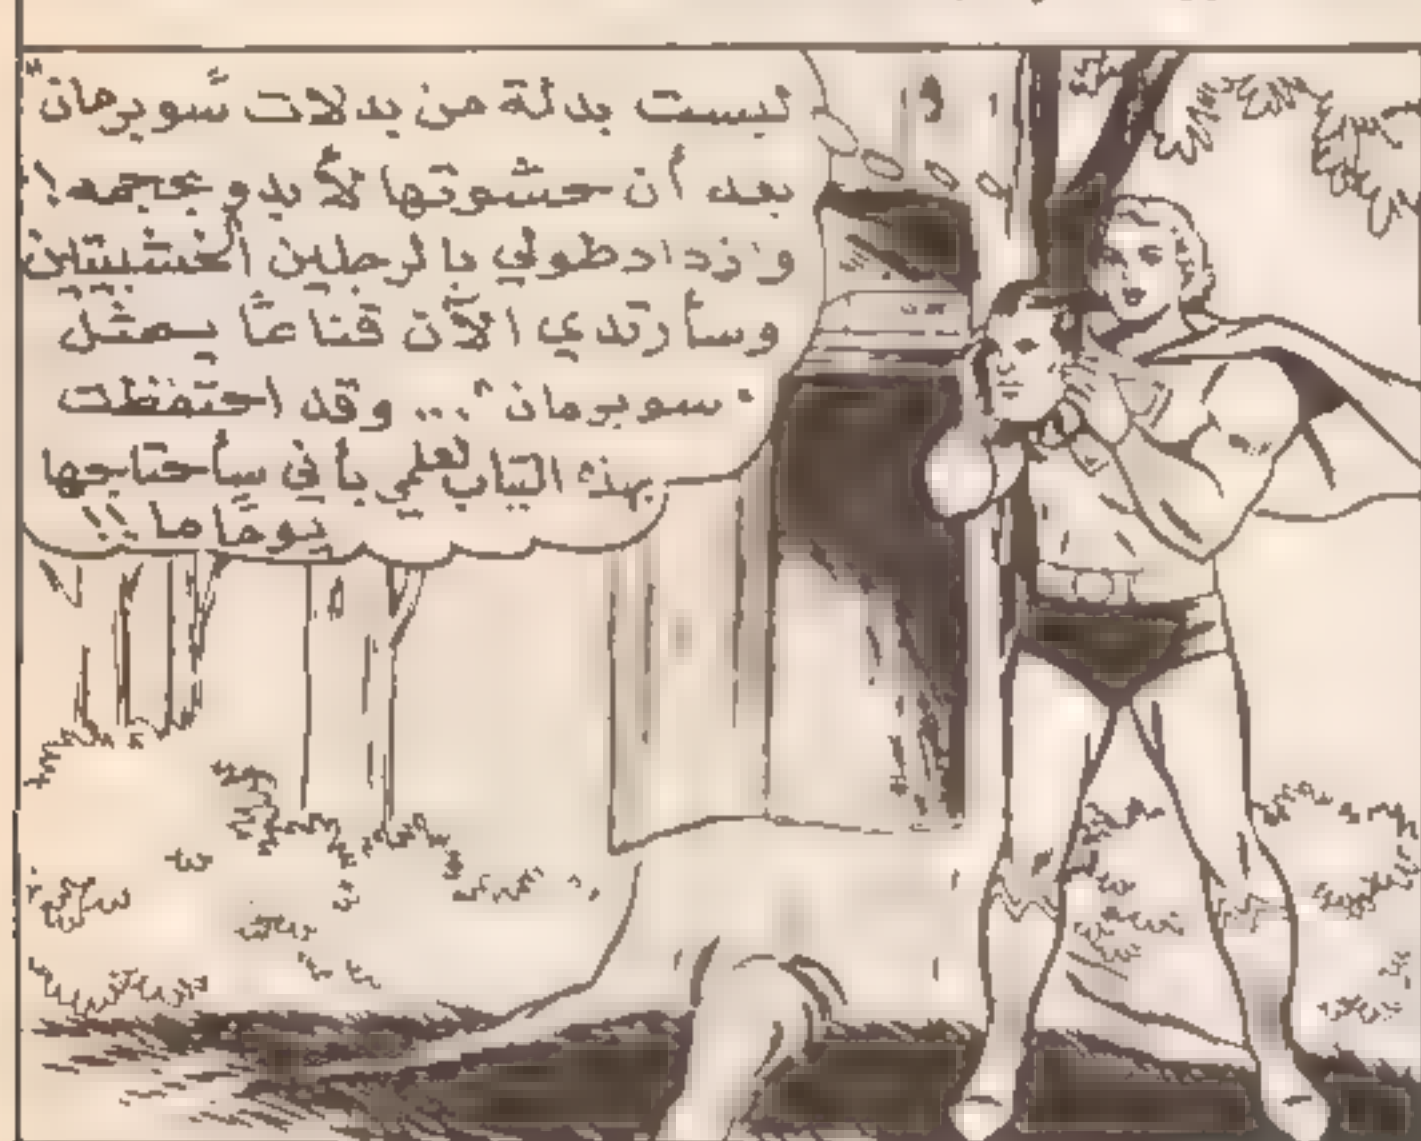 لبست بدلة من بدلات "سوبرمان"
بعد أن حشوتها لأبدو بحجمه!
وازداد طولي بالرجلين الخشبيتين
وسأرتدي الآن قناعًا يمثل
"سوبرمان"... وقد احتفظت
بهذه الثياب لعلمي بأني سأحتاجها
يومًا ما!!